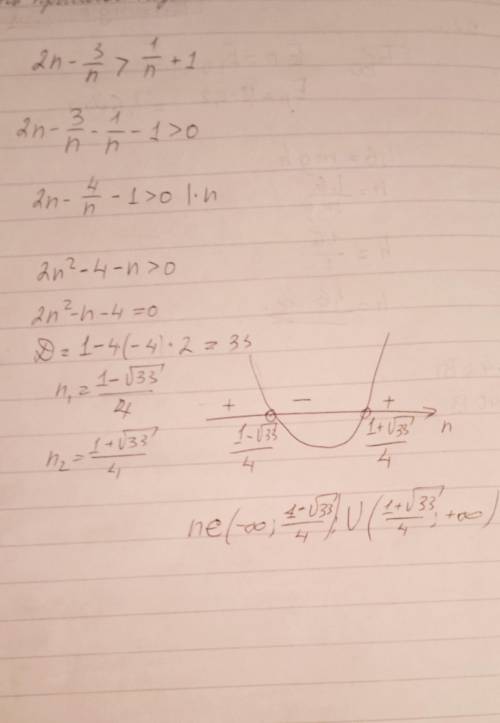 2n - 3/n > 1/n + 1
2n - 3/n - 1/n - 1 > 0
2n - 4/n - 1 > 0 | · n
2n² - 4 - n > 0
2n² - n - 4 = 0
D = 1 - 4(-4) · 2 = 33
n₁ = (1 - √33)/4
n₂ = (1 + √33)/4
+ - +
(1 - √33)/4 (1 + √33)/4 n
n ∈ (-∞; (1 - √33)/4) ∪ ((1 + √33)/4; +∞)